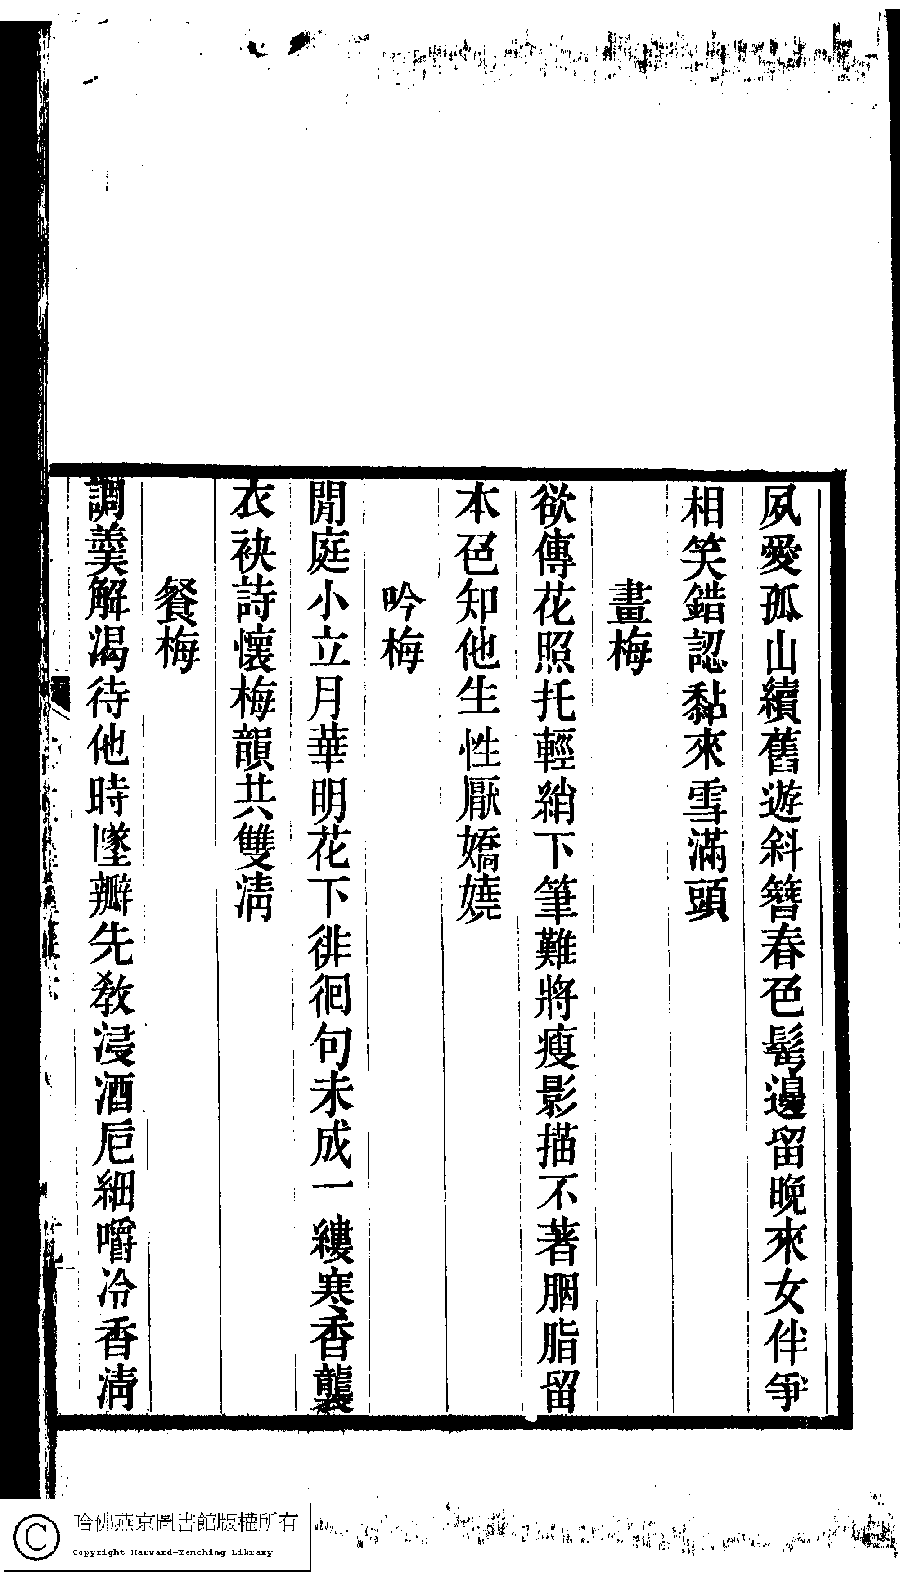 夙愛孤山續舊遊斜簪春色髩邊留晚來女伴爭
相笑錯認黏來雪滿頭
畫梅
欲傳花照托輕綃下筆難將瘦影描不著胭脂留
本色知他生性厭嬌嬈
吟梅
閒庭小立月華明花下徘徊句未成一縷寒香襲
衣袂詩懷梅韻共雙清
餐梅
調羹解渴待他時墜瓣先教浸酒卮細嚼冷香清
哈佛燕京圖書館版權所有
Copyright Harvard-Yenching Library